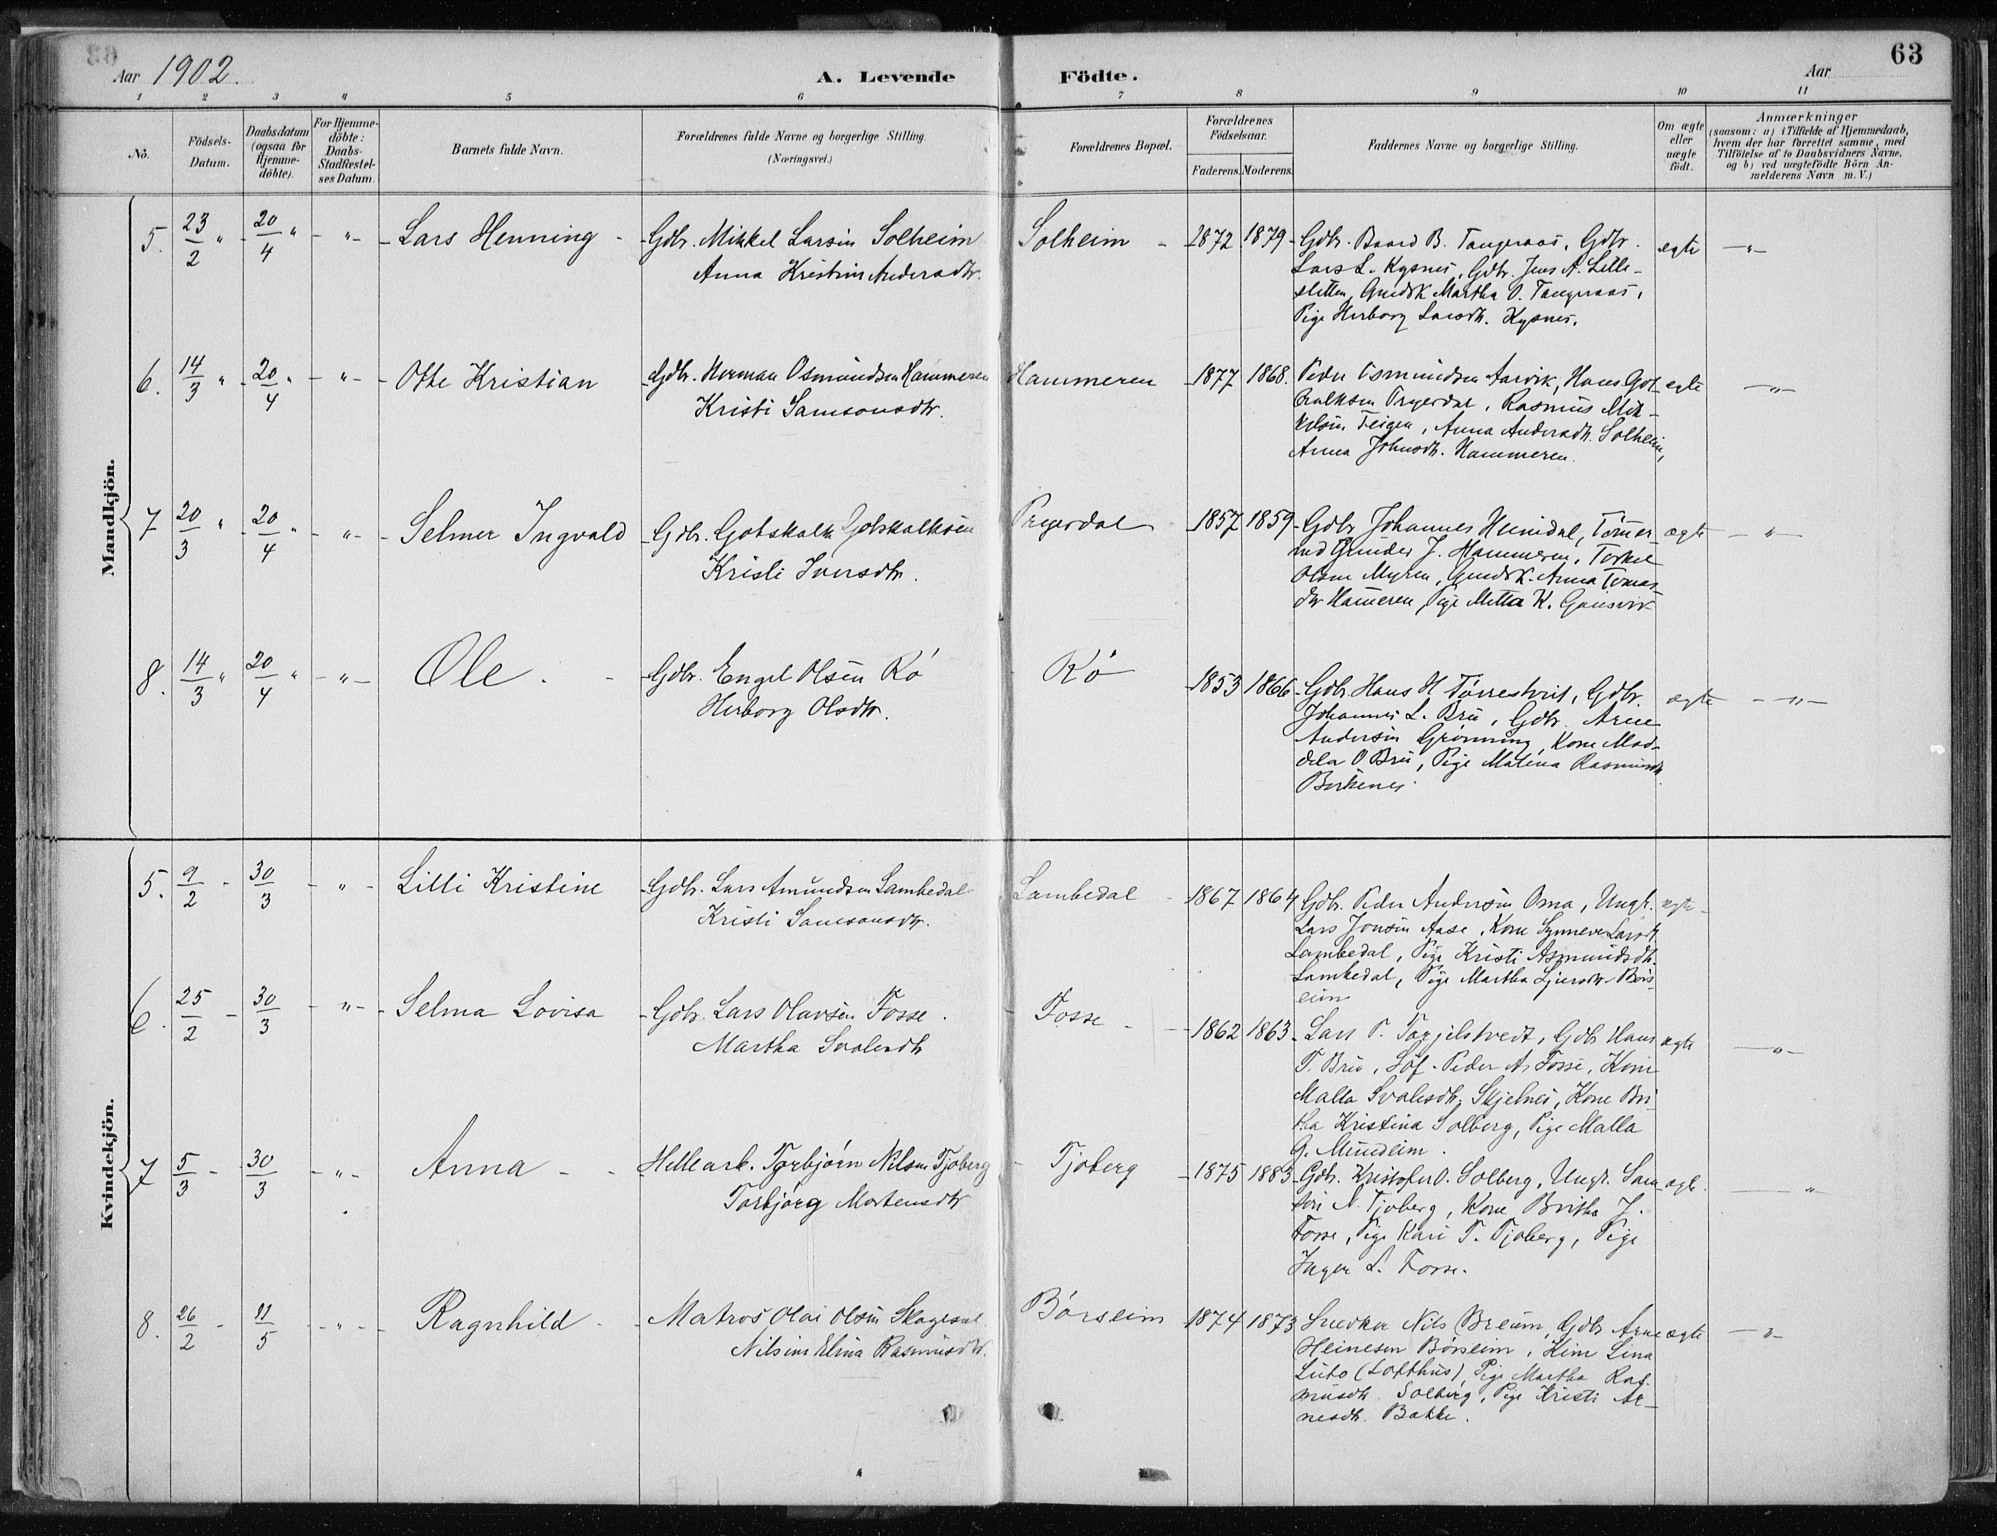 Aar 1902.
A. Levende
Födte.
Aar
63
1 2 3 4 5 6 7 8 9 10 11
No.
Födsels-
Datum.
Daabsdatum
(ogsaa for
Hjemme-
döbte).
For Hjemme-
döbte:
Daabs-
Stadfæstel-
ses Datum.
Barnets fulde Navn.
Forældrenes fulde Navne og borgerlige Stilling.
(Næringsvei.)
Forældrenes Bopæl.
Forældrenes
Födselsaar.
Faderens. Moderens.
Faddernes Navne og borgerlige Stilling.
Om ægte
eller
uægte
födt.
Anmærkninger
(saasom: a) i Tilfælde af Hjemmedaab,
hvem der har forrettet samme, med
Tilföielse af to Daabsvidners Navne,
og b) ved uægtefödte Börn An-
melderens Navn m. V.)
Mandkjön.
5. 23/2 " 20/4 " - " - Lars Henning - Gdbr. Mikkel Larsen Solheim
Anna Kristine Andersdtr.
Solheim - 1872 1879 Gdbr. Baard B. Tangeraas, Gdbr.
Lars L. Kysnes, Gdbr. Jens A. Lille-
sletten, Gmdsk Martha O. Tangeraas,
Pige Herborg Larsdtr. Kysnes.
egte - " -
6. 14/3 " 20/4 " - " - Otte Kristian Gdbr. Herman Osmundsen Hammeren
Kristi Samsonsdtr.
Hammeren 1877 1868. Peder Osmundsen Aarvik, Hans Got-
skalksen Pryerdal, Rasmus Mik-
kelsen Teigen, Anna Andersdtr. Solheim,
Anna Johnsdtr. Hammeren.
egte - " -
7 20/3 " 20/4 " - " - Selmer Ingvald Gdbr. Gotskalk Gotskalksen
Kristi Iversdtr.
Pryerdal 1857 1859 Gdbr Johannes Heimdal, Tømer-
md Gunder J. Hammeren, Torkel
Olsen Myren, Gmdsk. Anna Tomas-
dtr Hameren, Pige Metta K. Gausvik
ægte - " -
8. 14/3 " 20/4 " - " - Ole - Gdbr. Engel Olsen Rø
Herborg Olsdtr.
Rø 1853 1866 Gdbr. Hans H Tørrestveit, Gdbr.
Johannes L. Bru, Gdbr. Arne
Andersen Grønning, Kone Mad-
dela O Bru, Pige Malena Rasmusdtr
Birkenes
ægte - " -
Kvindekjön.
5. 9/2 - 30/3 - " - Lilli Kristine Gdbr. Lars Amundsen Lambedal
Kristi Samsonsdtr.
Lambedal - 1867 1864 Gdbr. Peder Andersen Oma, Ungk.
Lars Jonsen Aase, Kone Synneve Larsdt.
Lambedal, Pige Kristi Asmundsdtr.
Lambedal, Pige Martha Børs-
eim
egte
6. 25/2 - 30/3 - " - Selma Lovisa Gdbr. Lars Olavsen Fosse.
Martha Svalesdtr
Fosse - 1862 1863 Lars P. Torjelstvedt, Gdbr Hans
T. Bru, Søf. Peder A. Fosse, Kone
Malla Svalesdtr. Skjelnes, Kone Bri-
tha Kristina Solberg, Pige Malla
G. Mundeim.
ægte - " -
7 5/3 - 30/3 - " - Anna - - Hellearb. Torbjørn Nilsen Tjoberg
Torbjørg Mortensdtr
Tjoberg 1875 1883 Gdbr. Kristofer O. Solberg, Ungk. Sam-
son N. Tjoberg, Kone Britha J.
Fosse, Pige Kari T. Tjoberg, Pige
Inger L. Fosse.
ægte. - "
8. 26/2 - 11/5 - " - Ragnhild - Matros Olai Olsen
Nilsine Elina Rasmusdtr.
Børseim 1874 1873 Snedker Nils Breum, Gdbr Arne
Heinesen Børseim, Kone Lina
Luto (Lofthus), Pige Martha Ras-
musdtr. Solberg, Pige Kristi Ar-
nesdtr. Bakke.
ægte - " -